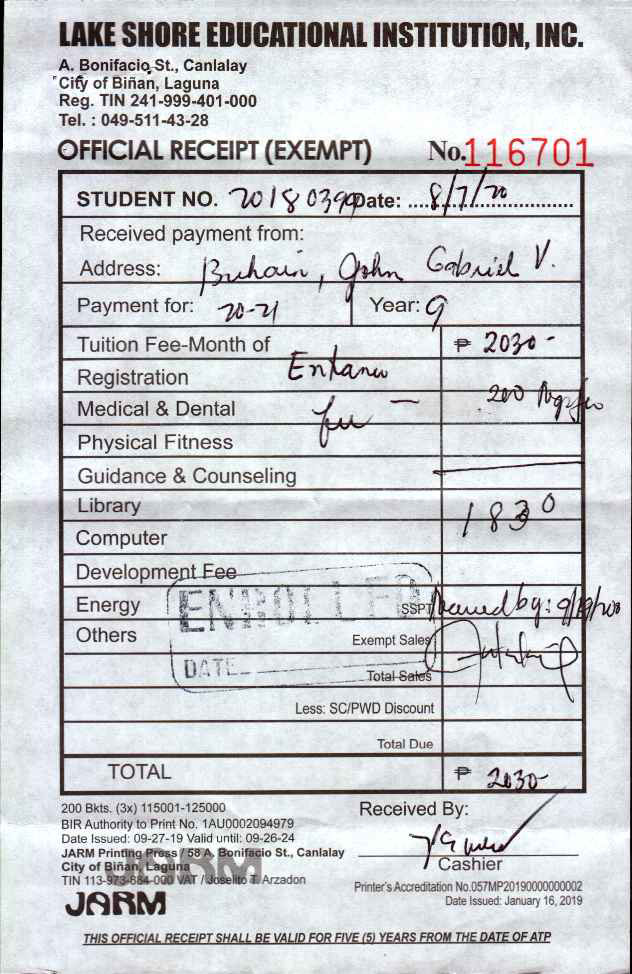 LAKE SHORE EDUCATIONAL INSTITUTION, INC.
A. Bonifacio St., Canlalay
City of Biñan, Laguna
Reg. TIN 241-999-401-000
Tel. : 049-511-43-28
OFFICIAL RECEIPT (EXEMPT) No. 116701
STUDENT NO. 20180399 Date: 8/7/20
Received payment from:
Address: Buhain, John Gabriel V.
Payment for: 20-21 Year: 9
Tuition Fee-Month of ₱ 2030-
Registration Entrance
Medical & Dental fee 200
Physical Fitness
Guidance & Counseling
Library 1830
Computer
Development Fee
ENROLLED
Energy SSPT by:
Others Exempt Sales
DATE
Total Sales
Less: SC/PWD Discount
Total Due
TOTAL ₱ 2030-
200 Bkts. (3x) 115001-125000
BIR Authority to Print No. 1AU0002094979
Date Issued: 09-27-19 Valid until: 09-26-24
JARM Printing Press / 58 A. Bonifacio St., Canlalay
City of Biñan, Laguna
TIN 113-973-684-000 VAT / Joselito T. Arzadon
JARM
Received By:
Cashier
Printer's Accreditation No.057MP20190000000002
Date Issued: January 16, 2019
THIS OFFICIAL RECEIPT SHALL BE VALID FOR FIVE (5) YEARS FROM THE DATE OF ATP